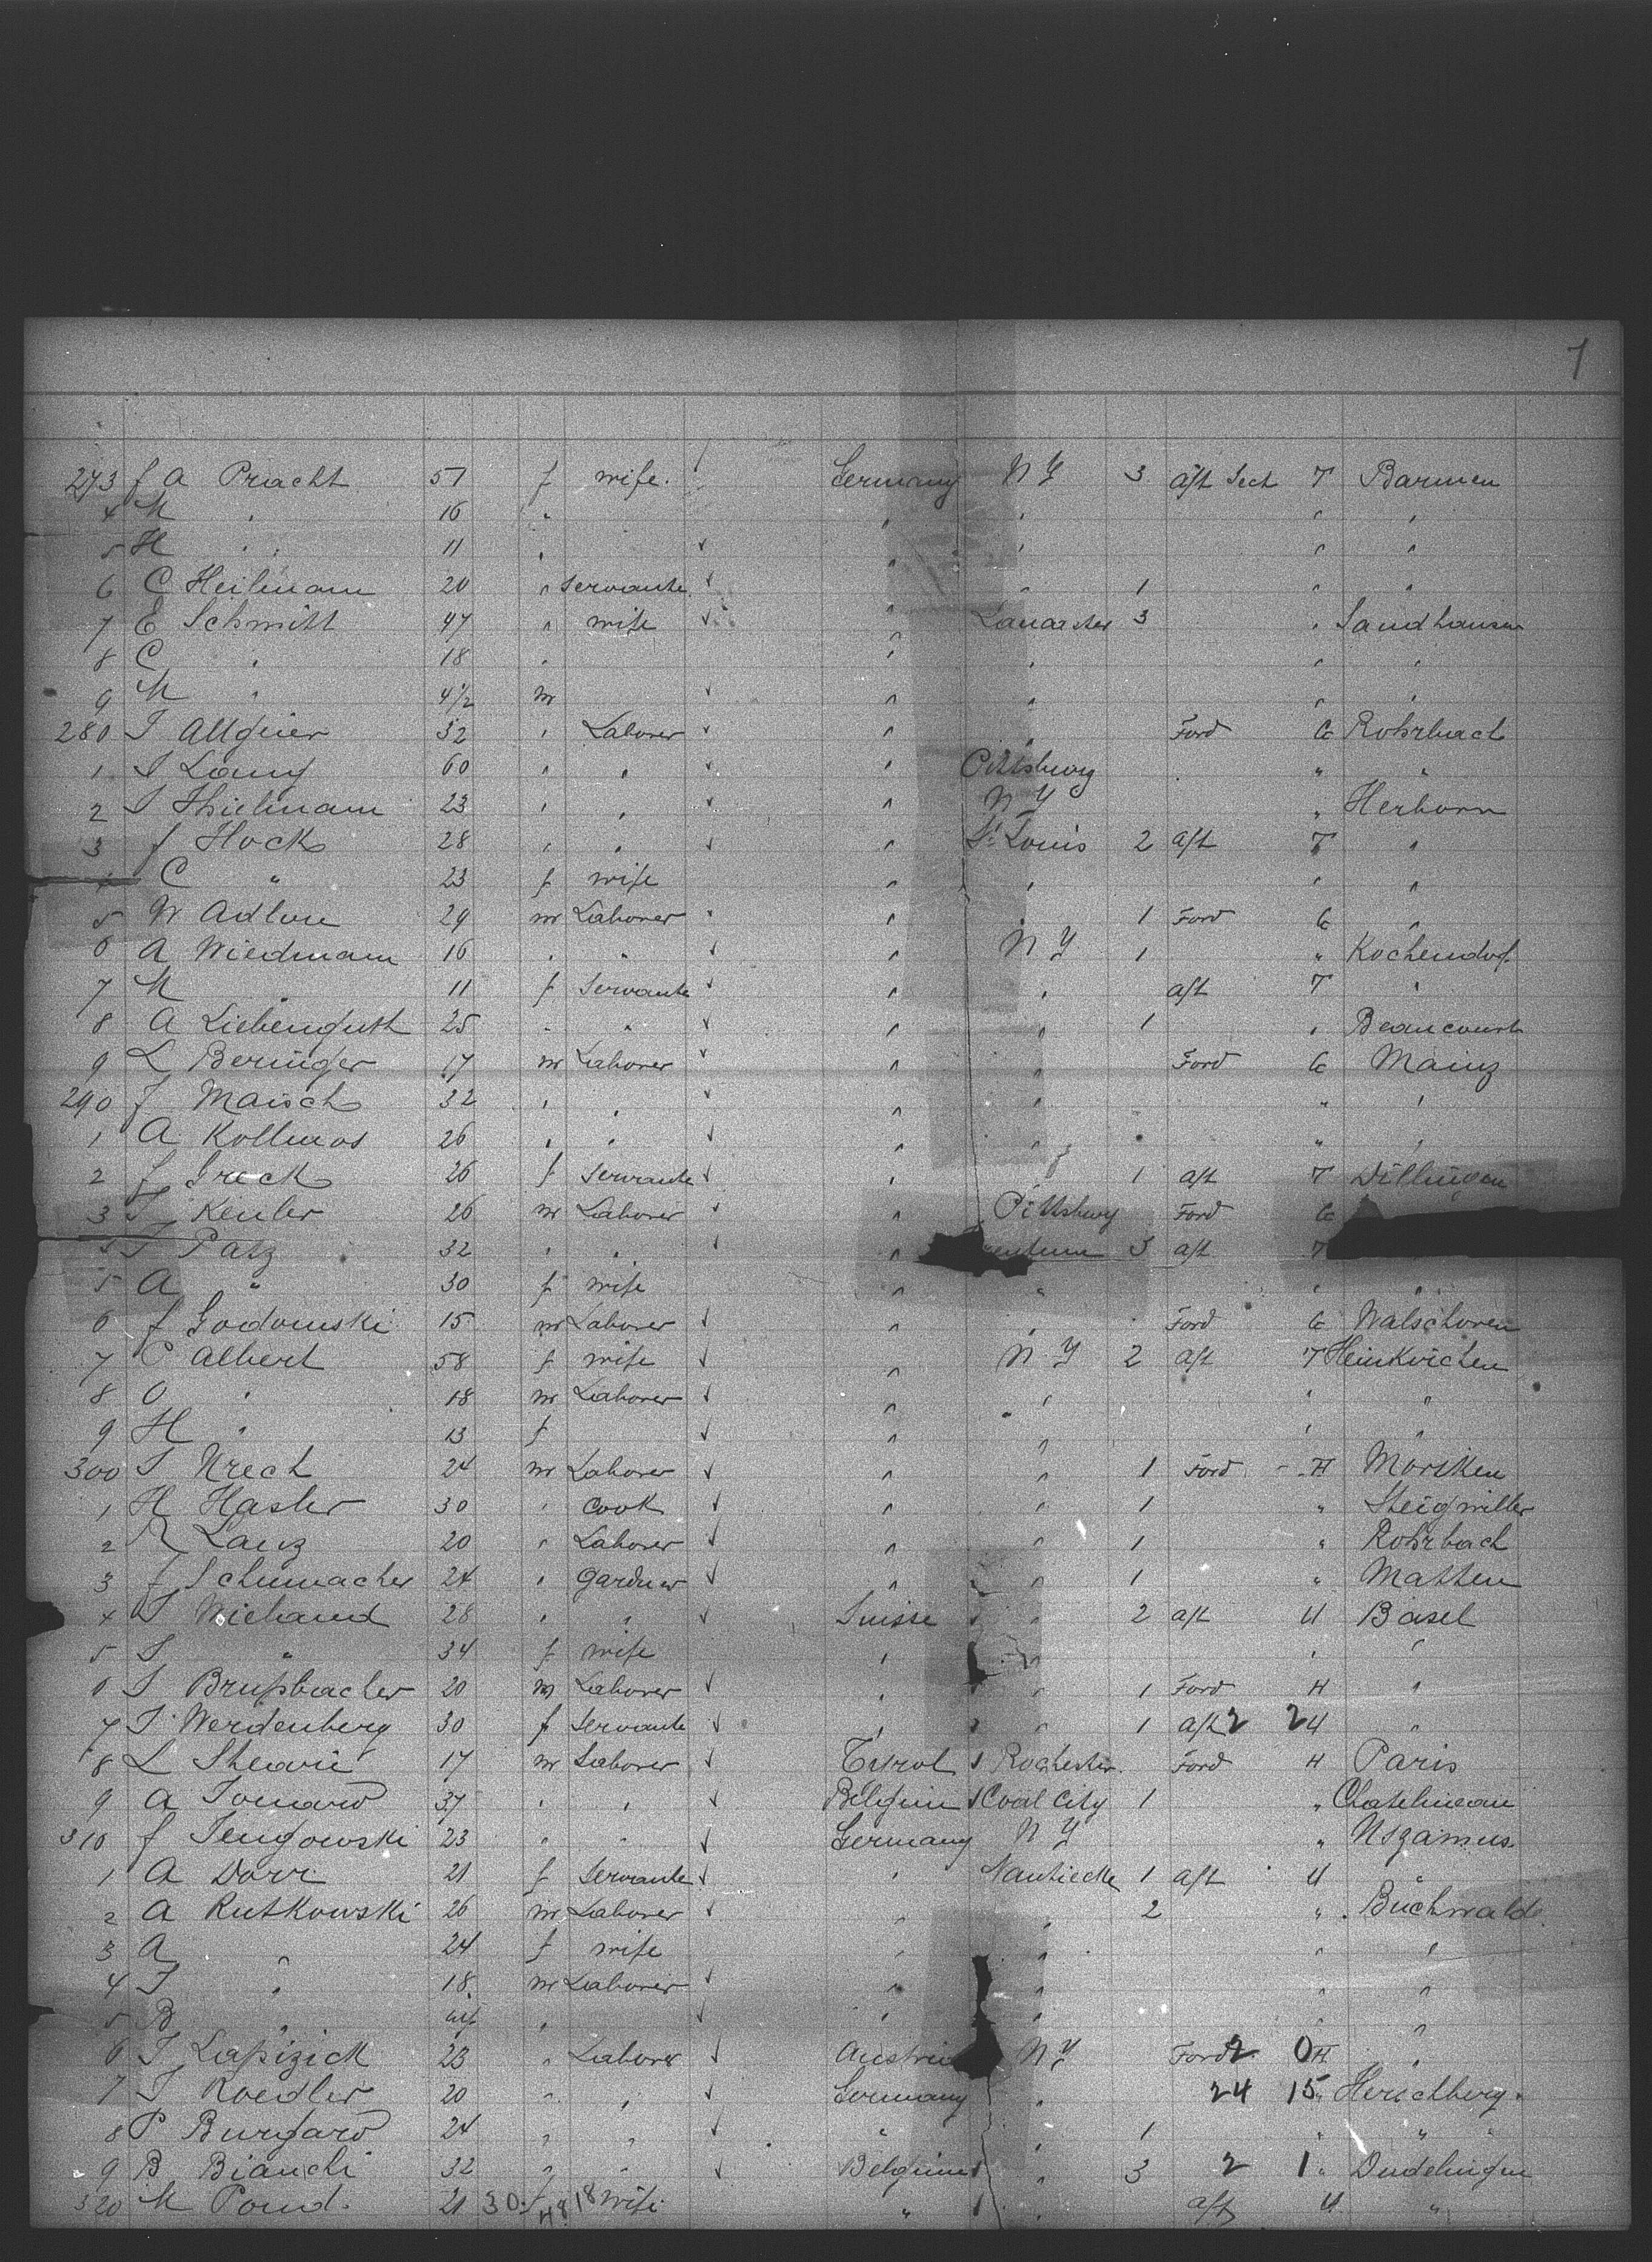 7
273 f A Pracht 51 f wife. Germany N Y 3 aft Sect T Barmen
4 M " 16 " " " " "
5 H " 11 " " " " "
6 C Heilmann 20 " servante " " 1 " "
7 E Schmitt 47 " wife " Lancaster 3 " Sandhausen
8 C " 18 " " " " "
9 M " 4 1/2 m " " " "
280 J Allgeier 32 " Laborer " " Ford G Rohrbach
1 J Lang 60 " " " Pittsburg " "
2 J Thielmann 23 " " " N Y " Herborn
3 f Hock 28 " " " St Louis 2 aft T "
C " 23 f wife " " " "
5 W Adlon 29 m Laborer " " 1 Ford G "
6 A Wiedmann 16 " " " N Y 1 " Kochendorf
7 M " 11 f servante " " aft T "
8 A Liebenguth 25 " " " " 1 " Beaucourt
9 L Beringer 17 m Laborer " " Ford G Mainz
290 f Maisch 32 " " " " " "
1 A Kollmos 26 " " " " " "
2 f Greck 26 f servante " " 1 aft T Dillingen
3 J Keuler 26 m Laborer " Pittsburg Ford G
J Patz 32 " " " 3 aft T
5 A " 30 f wife " " " "
6 f Godomski 15 m Laborer " " Ford G Walschoren
7 C Albert 58 f wife " N Y 2 aft T Heinkirchen
8 O " 18 m Laborer " " " "
9 H " 13 f " " " "
300 J Urech 24 m Laborer " " 1 Ford H Moriken
1 H Hasler 30 " Cook " " 1 "
2 R Lanz 20 " Laborer " " 1 " Rohrbach
3 f Schumacher 24 " Gardner " " 1 " Matten
4 J Wieland 28 " " Suisse " 2 aft U Basel
5 S " 34 f wife " " " "
6 J Brupbacher 20 m Laborer " " 1 Ford H "
7 J Werdenberg 30 f Servante " " 1 aft 2 24 "
8 L 17 m Laborer Tyrol Rochester Ford H Paris
9 A 37 " " Belgium Coal City 1 " Chatelineau
310 f Jengowski 23 " " Germany N Y "
1 A Dorr 21 f Servante " 1 aft U "
2 A Rutkowski 26 m Laborer " " 2 " Buchwald
3 A " 24 f wife " " " "
4 J " 18 m Laborer " " " "
5 B " " " " "
6 J Lapizick 23 " Laborer Austria N Y Ford 2 0 H "
7 J Roedler 20 " " Germany " 24 15 " Herschberg
8 P Burgard 24 " " " " 1 " "
9 B Bianchi 32 " " Belgium " 3 2 1 " Dudelingen
320 M Pond. 21 30 f 48 18 wife " " aft U "